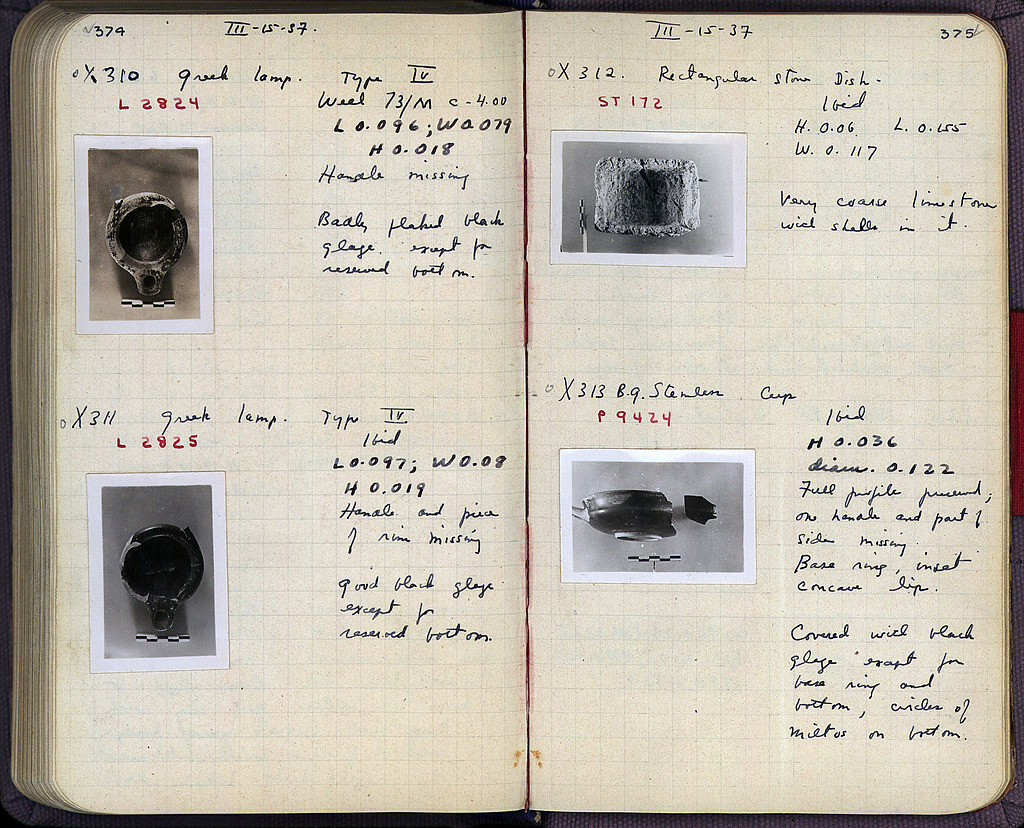 374
III-15-37.
X 310 Greek lamp. Type IV
L 2824
Well 73/M C-4.00
L 0.096; W 0.079
H 0.018
Handle missing
Badly flaked black
glaze except for
reserved bottom.
X 311 Greek lamp. Type IV
L 2825
Ibid
L 0.097; W 0.08
H 0.019
Handle and piece
of rim missing
Good black glaze
except for
reserved bottom.
III-15-37
375
X 312. Rectangular stone Dish.
ST 172
Ibid
H. 0.06 L. 0.155
W. 0.117
Very coarse limestone
with shells in it.
X 313 B.g. Stemless Cup
P 9424
Ibid
H 0.036
diam. 0.122
Full profile preserved;
one handle and part of
side missing.
Base ring, inset
concave lip.
Covered with black
glaze except for
base ring and
bottom, circles of
miltos on bottom.